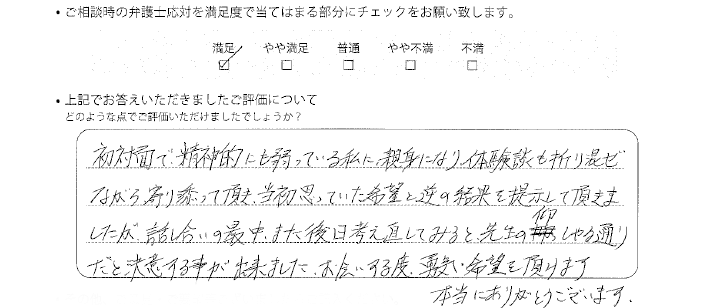 ・ご相談時の弁護士応対を満足度で当てはまる部分にチェックをお願い致します。
満足 やや満足 普通 やや不満 不満
☑ □ □ □ □
・上記でお答えいただきましたご評価について
どのような点でご評価いただけましたでしょうか？
初対面で、精神的にも弱っている私に、親身になり、体験談も折り混ぜ
ながら寄り添って頂き、当初思っていた希望と逆の結果を提示して頂きま
したが、話し合いの最中、また後日考え直してみると、先生の仰しゃる通り
だと決意する事が出来ました。お会いする度、勇気と希望を頂けます
本当にありがとうございます。